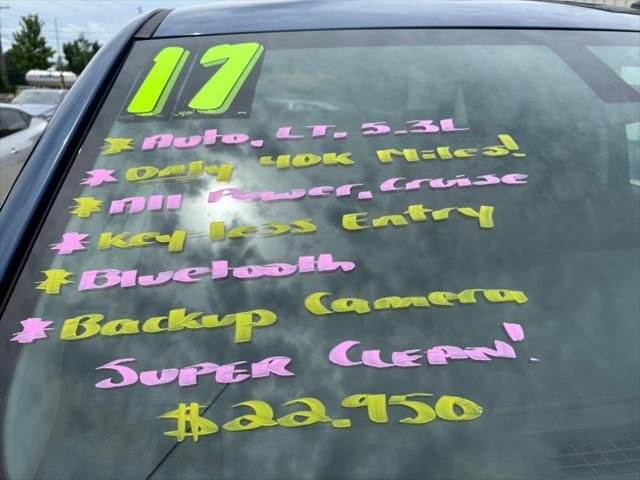 17
* Auto, LT, 5.3L
* Only 40K Miles!
* All Power, Cruise
* Key-less Entry
* Bluetooth
* Backup Camera
Super Clean!
$22.950